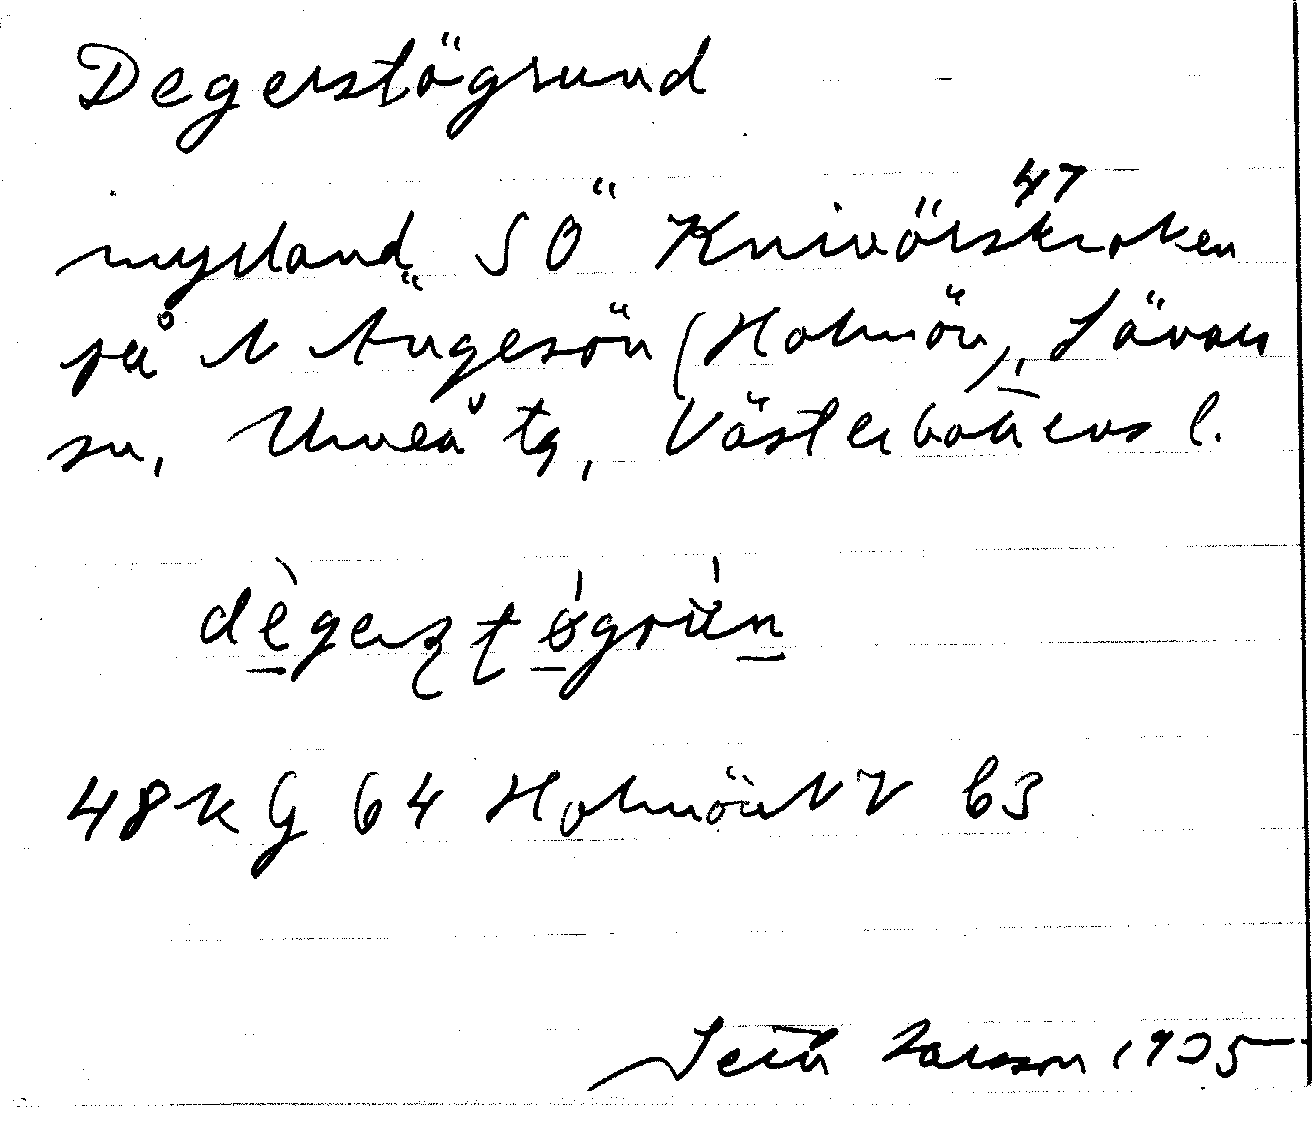 Degerstögrund
nyland SÖ Knivörskroken 47
på N Ängesön (Holmön), Sävars
sn, Umeå tg, Västerbottens l.
dègerstøgrún
48 K G 64 Holmön NV 63
Larsson 1935